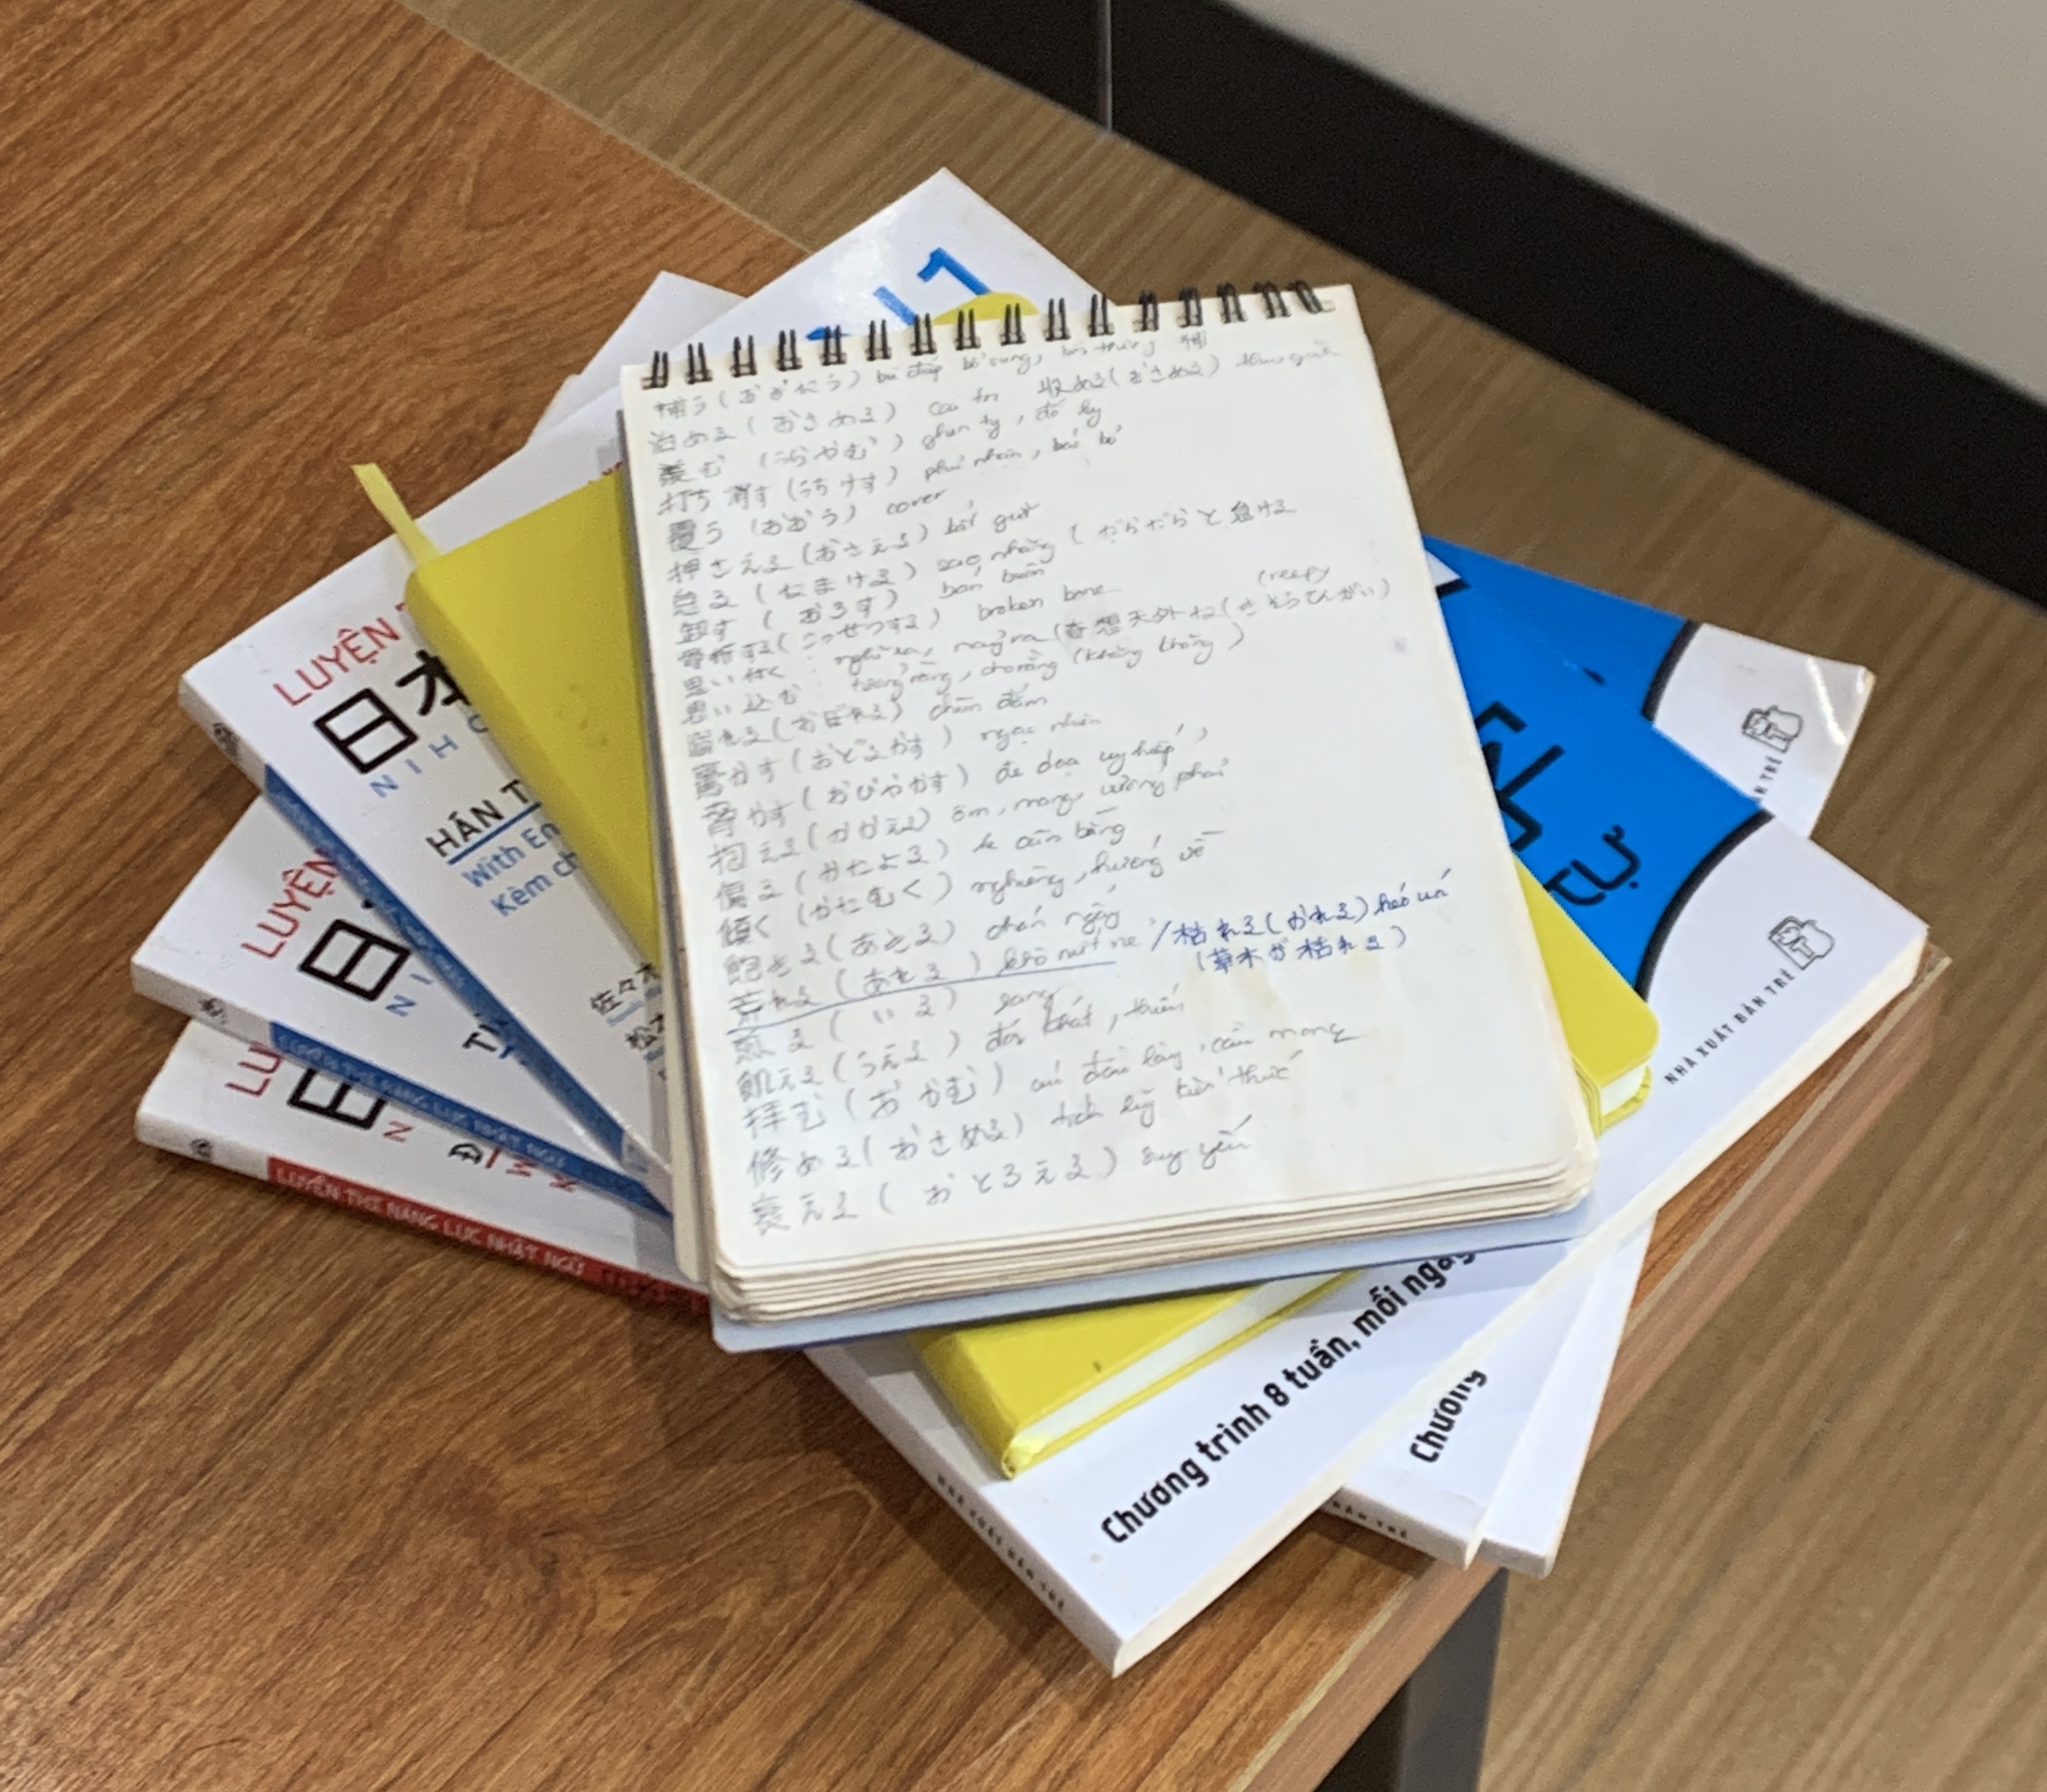 補う (おぎなう) bù đắp bổ sung, bồi thường 補
治める (おさめる) cai trị 収める (おさめる) thu
羨む (うらやむ) ghen tỵ, đố kỵ
打ち消す (うちけす) phủ nhận, bác bỏ
覆う (おおう) cover
押さえる (おさえる) bắt giữ
怠る (なまける) sao nhãng ( だらだらと怠ける
卸す ( おろす ) bán buôn
骨折する (こっせつする) broken bone creepy
思い付く nghĩ ra, nảy ra (奇想天外な (きそうてんがい)
思い込む tưởng rằng, cho rằng (khăng khăng)
溺れる (おぼれる) chìm đắm
驚かす (おどろかす) ngạc nhiên
脅かす (おびやかす) đe doạ uy hiếp,
抱える (かかえる) ôm, mang, vướng phải
偏る (かたよる) ko cân bằng
傾く (かたむく) nghiêng, hướng về
飽きる (あきる) chán ngấy
荒れる (あれる) khô nứt nẻ / 枯れる (かれる) héo úa
(草木が枯れる)
煎る ( いる ) rang
飢える (うえる) đói khát, thiếu
拝む (おがむ) cúi đầu lạy, cầu mong
修める (おさめる) tích luỹ kiến thức
衰える ( おとろえる ) suy yếu
LUYỆN
日本
NIH
HÁN T
With En
Kèm ch
佐々木
松本
LUYỆN
日
NI
TỪ
LU
日
N
LUYỆN THI NĂNG LỰC NHẬT NGỮ
TỰ
NHÀ XUẤT BẢN TRẺ
Chương trình 8 tuần, mỗi ngày
Chương